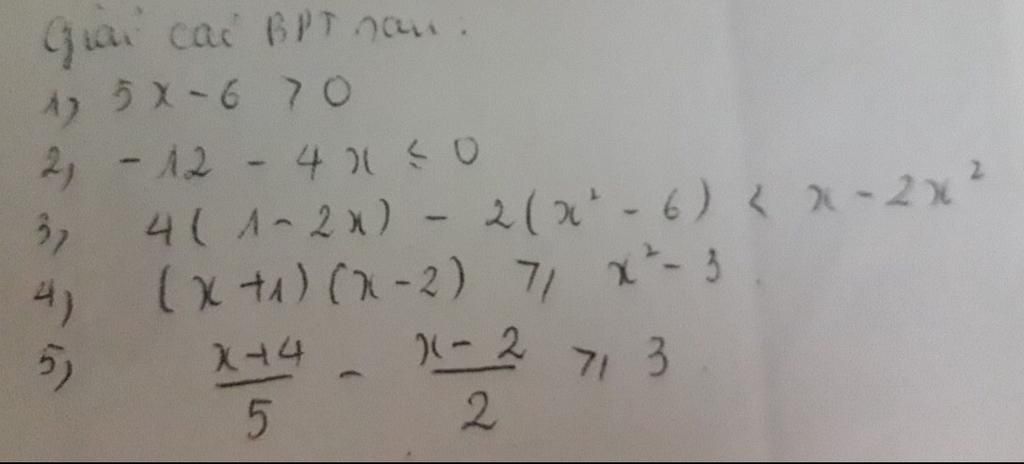 Giải các BPT sau:
1, 5x - 6 > 0
2, - 12 - 4x ≤ 0
3, 4(1 - 2x) - 2(x² - 6) < x - 2x²
4, (x + 1)(x - 2) ≥ x² - 3.
5, \frac{x+4}{5} - \frac{x-2}{2} ≥ 3